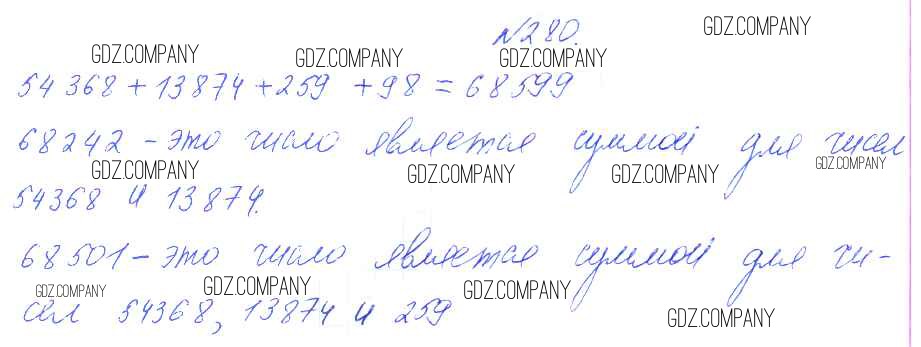 №280.
GDZ.COMPANY
GDZ.COMPANY GDZ.COMPANY GDZ.COMPANY
54368+13874+259+98=68599
68242-это число является суммой для чисел
GDZ.COMPANY GDZ.COMPANY GDZ.COMPANY GDZ.COMPANY
54368 и 13874.
68501-это число является суммой для чи-
GDZ.COMPANY GDZ.COMPANY GDZ.COMPANY
сел 54368, 13874 и 259
GDZ.COMPANY